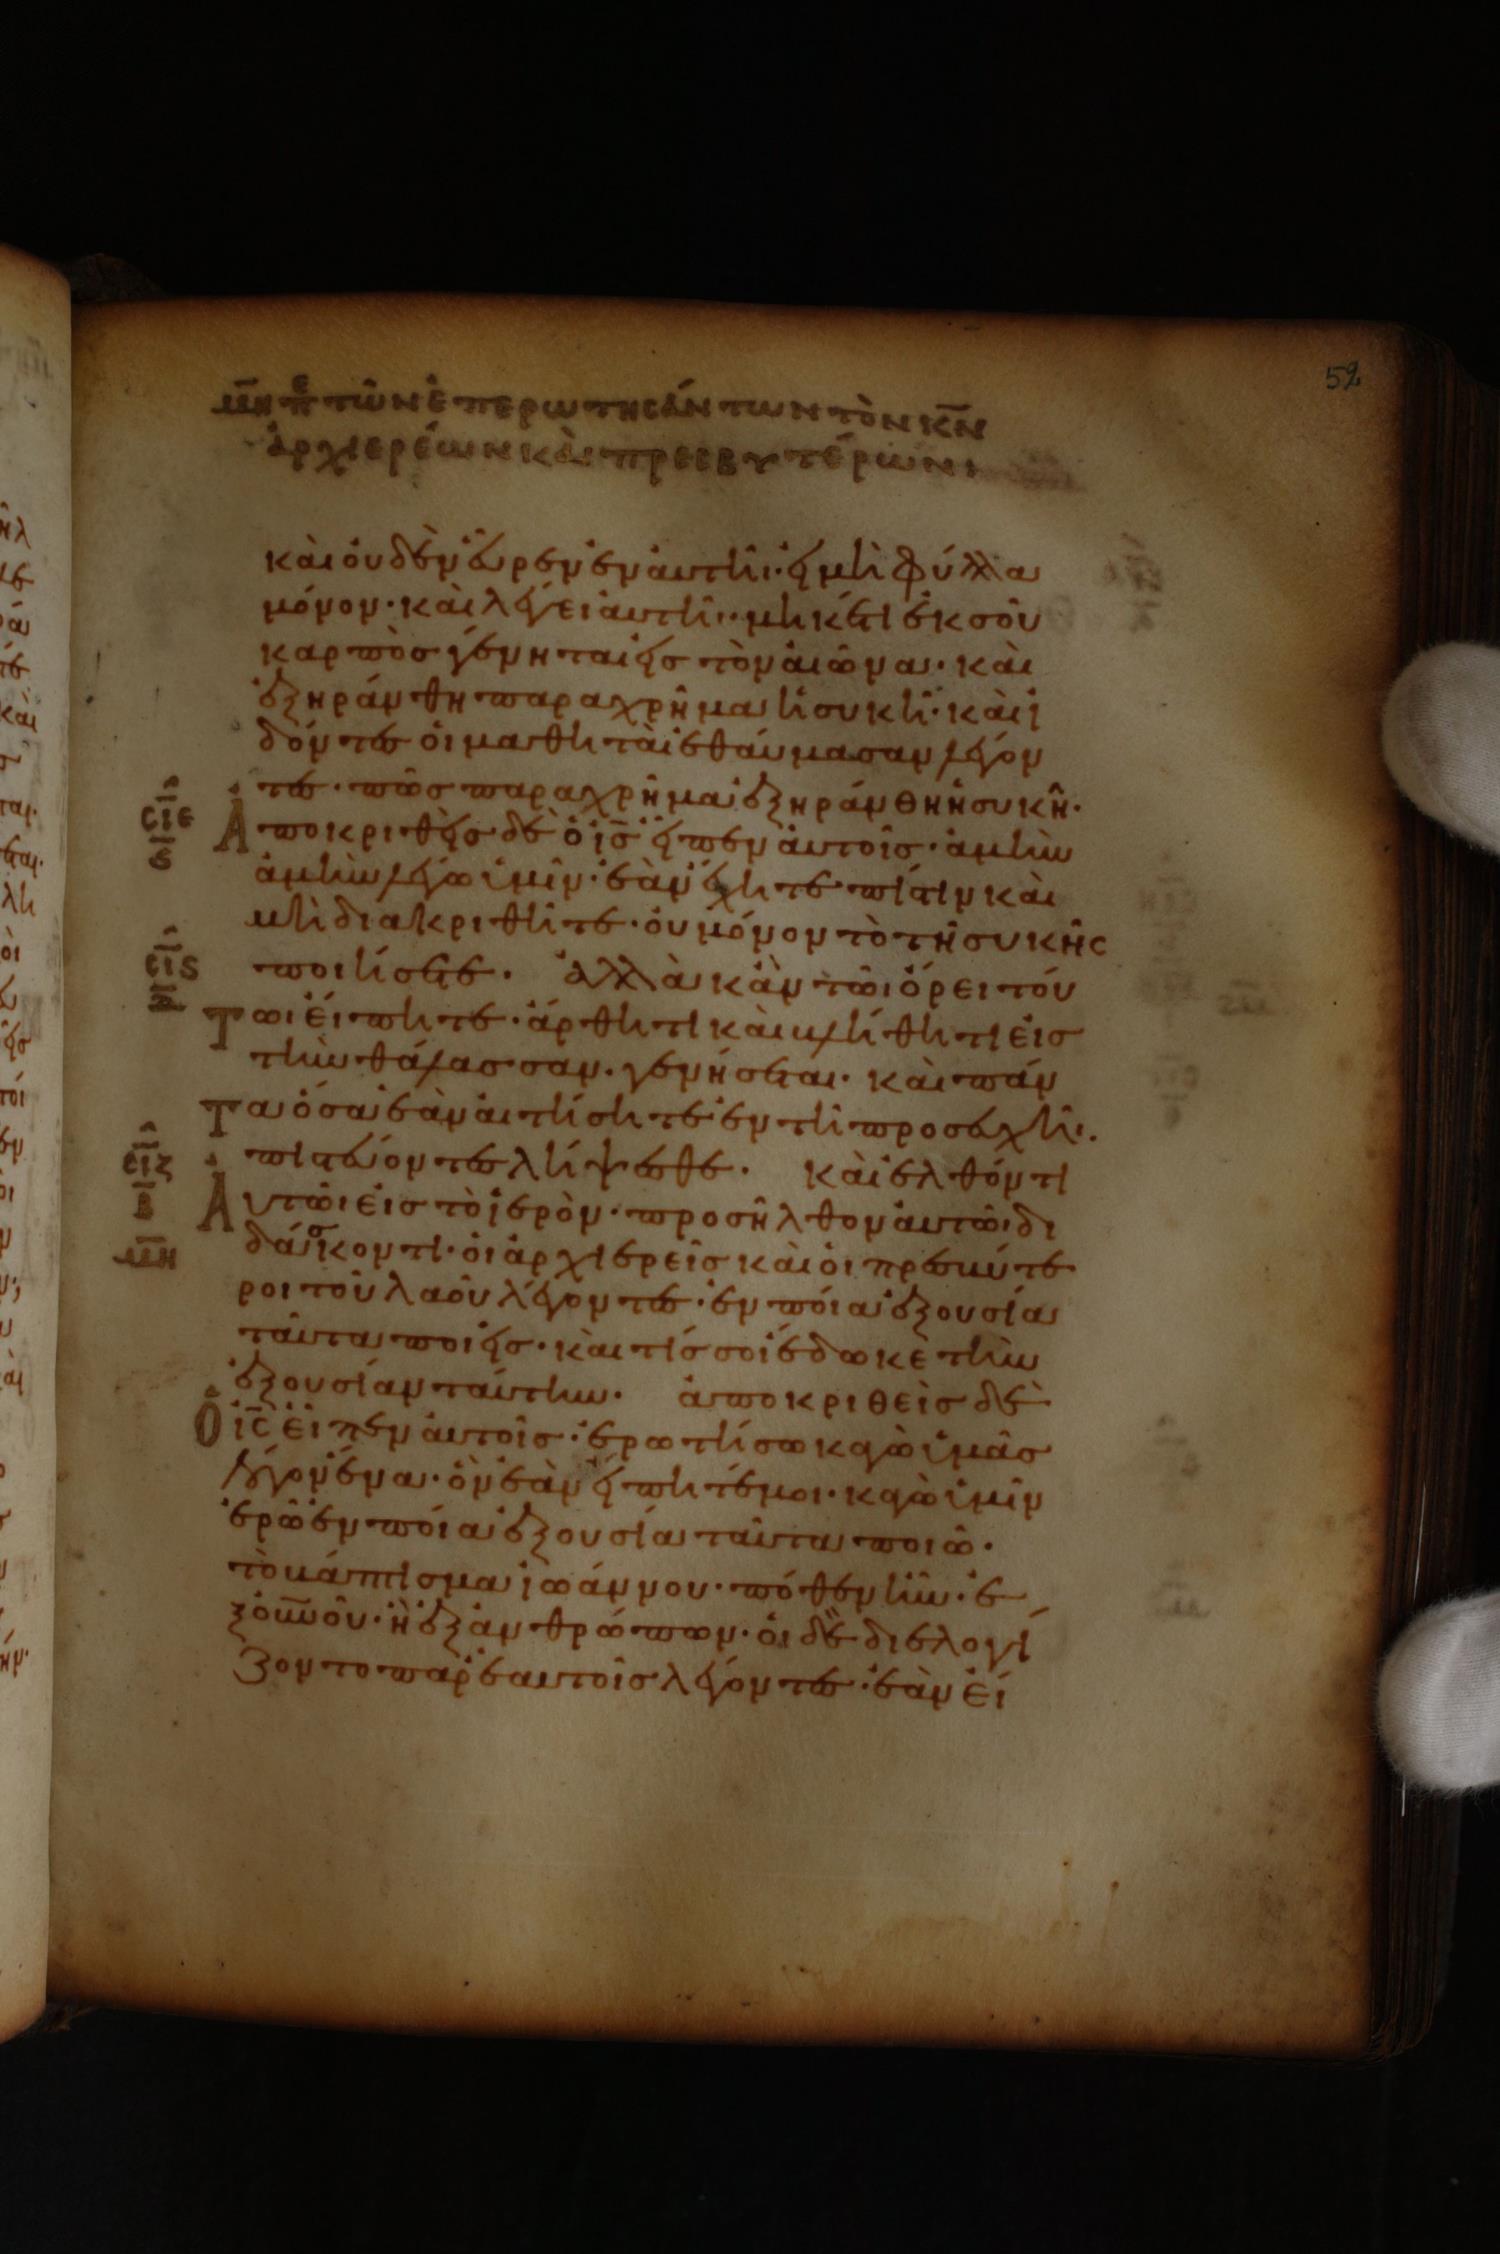 52
μη πε τῶν ἐπερωτησάντων τὸν κν
ἀρχιερέων καὶ πρεσβυτέρων
καὶ οὐδὲν εὗρεν ἐν αὐτῆι· εἰ μὴ φύλλα
μόνον· καὶ λέγει αὐτῆ· μηκέτι ἐκ σοῦ
καρπὸσ γένηται εἰσ τὸν αἰῶνα· καὶ
ἐξηράνθη παραχρῆμα ἡ συκῆ· καὶ ἰ
δόντεσ οἱ μαθηταὶ ἐθαύμασαν λέγον
τεσ· πῶσ παραχρῆμα ἐξηράνθη ἡ συκῆ·
σιε
ς
Ἀποκριθεὶσ δὲ ὁ ισ εἶπεν αὐτοῖσ· ἀμὴν
ἀμὴν λέγω ὑμῖν· ἐὰν ἔχητε πίστιν καὶ
μὴ διακριθῆτε· οὐ μόνον τὸ τῆσ συκῆσ
σις
ποιήσετε· ἀλλὰ κἂν τῶι ὄρει τού
Τωι εἴπητε· ἄρθητι καὶ βλήθητι εἰσ
τὴν θάλασσαν· γενήσεται· καὶ πάν
Τα ὅσα ἐὰν αἰτήσητε ἐν τῆ προσευχῆ·
πιστεύοντεσ λήψεσθε· καὶ ἐλθόντι
σιζ
β
μη
Ἀυτῶι εἰσ τὸ ἱερὸν· προσῆλθον αὐτῶ δι
δάσκοντι· οἱ ἀρχιερεῖσ καὶ οἱ πρεσβύτε
ροι τοῦ λαοῦ λέγοντεσ· ἐν ποία ἐξουσία
ταῦτα ποιεῖσ· καὶ τίσ σοι ἔδωκε τὴν
ἐξουσίαν ταύτην· ἀποκριθεὶσ δὲ
Ὁ ισ εἶπεν αὐτοῖσ· ἐρωτήσω κἀγὼ ὑμᾶσ
λόγον ἕνα· ὃν ἐὰν εἴπητέ μοι· κἀγὼ ὑμῖν
ἐρῶ ἐν ποία ἐξουσία ταῦτα ποιῶ·
τὸ βάπτισμα ἰωάννου· πόθεν ἦν· ἐ
ξ οὐνοῦ· ἢ ἐξ ἀνθρώπων· οἱ δὲ διελογί
ζοντο παρ' ἑαυτοῖσ λέγοντεσ· ἐὰν εἴ